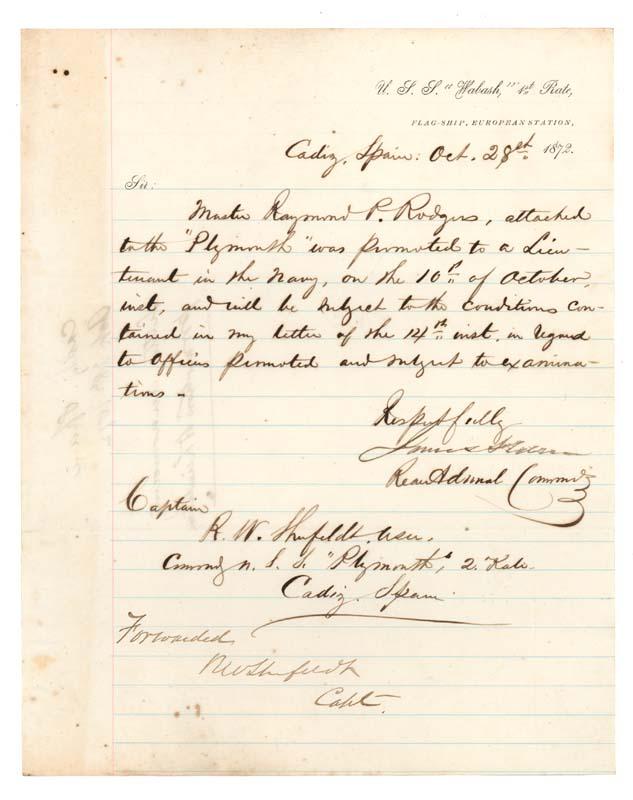 U. S. S. "Wabash," 1st Rate,
FLAG-SHIP, EUROPEAN STATION,
Cadiz, Spain: Oct. 28st 1872.
Sir:
Master Raymond P. Rodgers, attached
to the "Plymouth" was promoted to a Lieu-
tenant in the Navy, on the 10th of October,
inst, and will be subject to the conditions con-
tained in my letter of the 14th inst. in regard
to Officers promoted and subject to examina-
tions -
Respectfully
James Alden
Rear Admiral Commdg
Captain
R. W. Shufeldt. USN.
Commdg U. S. S. "Plymouth", 2. Rate.
Cadiz. Spain.
Forwarded
RW Shufeldt
Capt